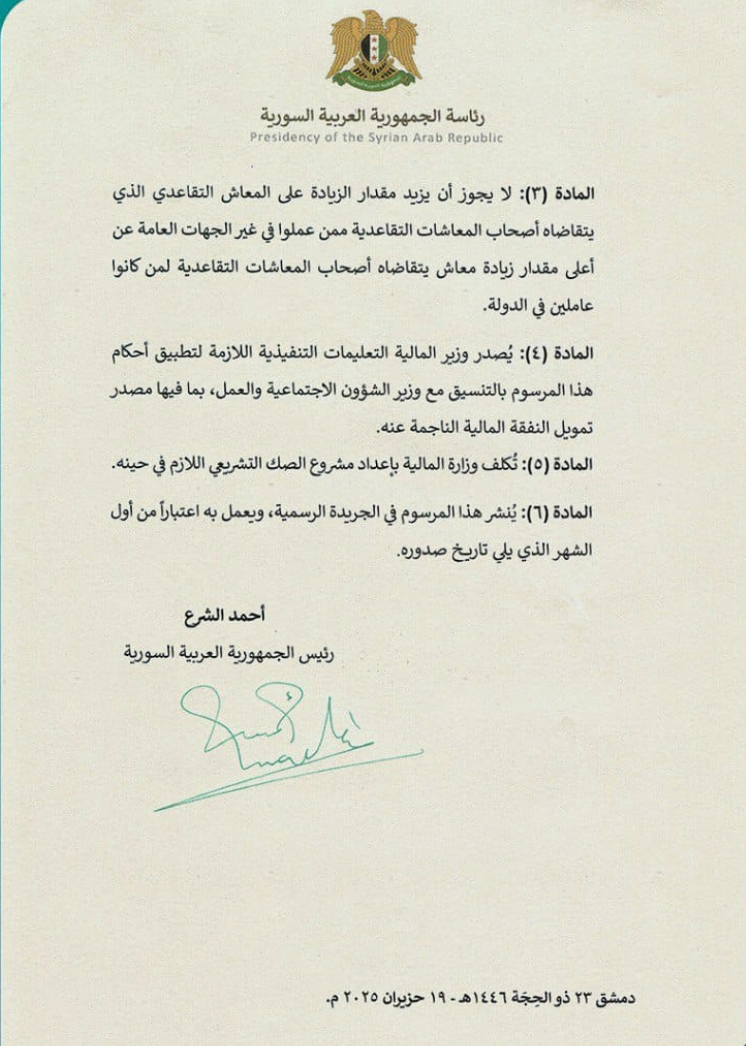 رئاسة الجمهورية العربية السورية
Presidency of the Syrian Arab Republic
المادة (٣): لا يجوز أن يزيد مقدار الزيادة على المعاش التقاعدي الذي
يتقاضاه أصحاب المعاشات التقاعدية ممن عملوا في غير الجهات العامة عن
أعلى مقدار زيادة معاش يتقاضاه أصحاب المعاشات التقاعدية لمن كانوا
عاملين في الدولة.
المادة (٤): يُصدر وزير المالية التعليمات التنفيذية اللازمة لتطبيق أحكام
هذا المرسوم بالتنسيق مع وزير الشؤون الاجتماعية والعمل، بما فيها مصدر
تمويل النفقة المالية الناجمة عنه.
المادة (٥): تُكلف وزارة المالية بإعداد مشروع الصك التشريعي اللازم في حينه.
المادة (٦): يُنشر هذا المرسوم في الجريدة الرسمية، ويعمل به اعتباراً من أول
الشهر الذي يلي تاريخ صدوره.
أحمد الشرع
رئيس الجمهورية العربية السورية
دمشق ٢٣ ذو الحِجّة ١٤٤٦هـ - ١٩ حزيران ٢٠٢٥ م.